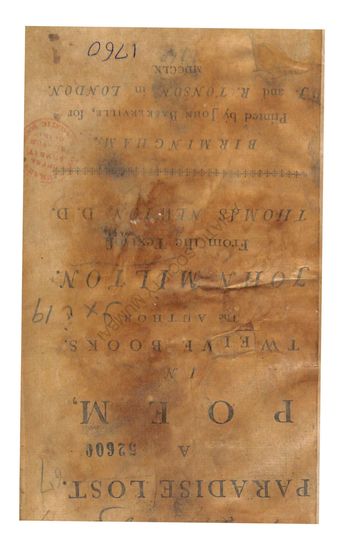 PARADISE LOST.
A
52600
POEM,
IN
TWELVE BOOKS.
The AUTHOR
JOHN MILTON.
From the Text of
THOMAS NEWTON D. D.
BIRMINGHAM.
Printed by JOHN BASKERVILLE, for
J. and R. TONSON, in LONDON.
MDCCLX
1760